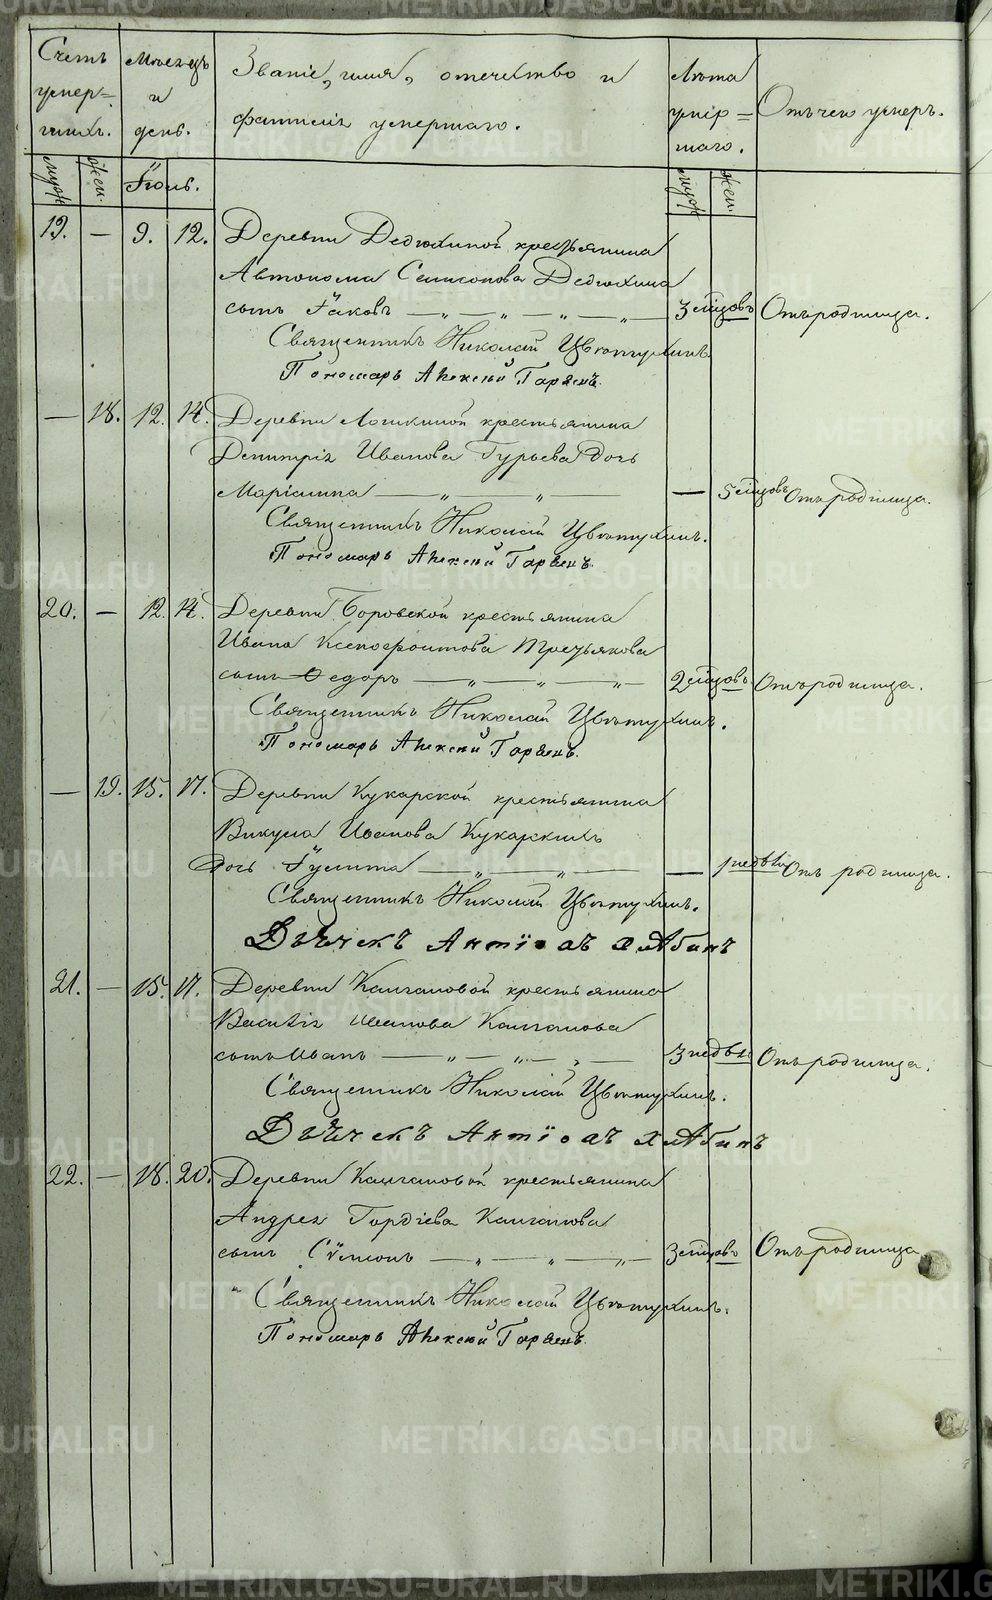 Счетъ умер=шихъ.
Мѣсяцъ и день.
Званіе, имя, отечество и фамилія умершаго.
Лѣта умер=шаго.
Отъ чего умеръ.
муж. жен. Іюль. муж. жен.
19. — 9. 12. Деревни Дедюхиной крестьянина
Автонома Самсонова Дедюхина
сынъ Іаковъ — „ — „ — „ — „ — 3 мѣсяцовъ Отъ родимца.
Священникъ Николай Цвѣтухинъ.
Пономарь Алексѣй Гаряевъ.
— 18. 12. 14. Деревни Логиновой крестьянина
Димитрія Иванова Гурьева дочь
Маріанна — „ — „ — — 5 мѣсяцовъ Отъ родимца.
Священникъ Николай Цвѣтухинъ.
Пономарь Алексѣй Гаряевъ.
20. — 12. 14. Деревни Боровской крестьянина
Ивана Ксенофонтова Третьякова
сынъ Ѳедоръ — „ — „ — „ — 2 мѣсяцовъ Отъ родимца.
Священникъ Николай Цвѣтухинъ.
Пономарь Алексѣй Гаряевъ.
— 19. 15. 17. Деревни Кукарской крестьянина
Викула Иванова Кукарскихъ
дочь Іулитта — „ — „ — — недѣли Отъ родимца.
Священникъ Николай Цвѣтухинъ.
Дьячекъ Антіохъ Хлябинъ
21. — 15. 17. Деревни Калгановой крестьянина
Василія Иванова Калганова
сынъ Иванъ — „ — „ — „ — 3 недѣль Отъ родимца.
Священникъ Николай Цвѣтухинъ.
Дьячекъ Антіохъ Хлябинъ
22. — 18. 20. Деревни Калгановой крестьянина
Андрея Гордіева Калганова
сынъ Сѵмеонъ — „ — „ — „ — 3 мѣсяцовъ Отъ родимца
Священникъ Николай Цвѣтухинъ.
Пономарь Алексѣй Гаряевъ.
METRIKI.GASO-URAL.RU